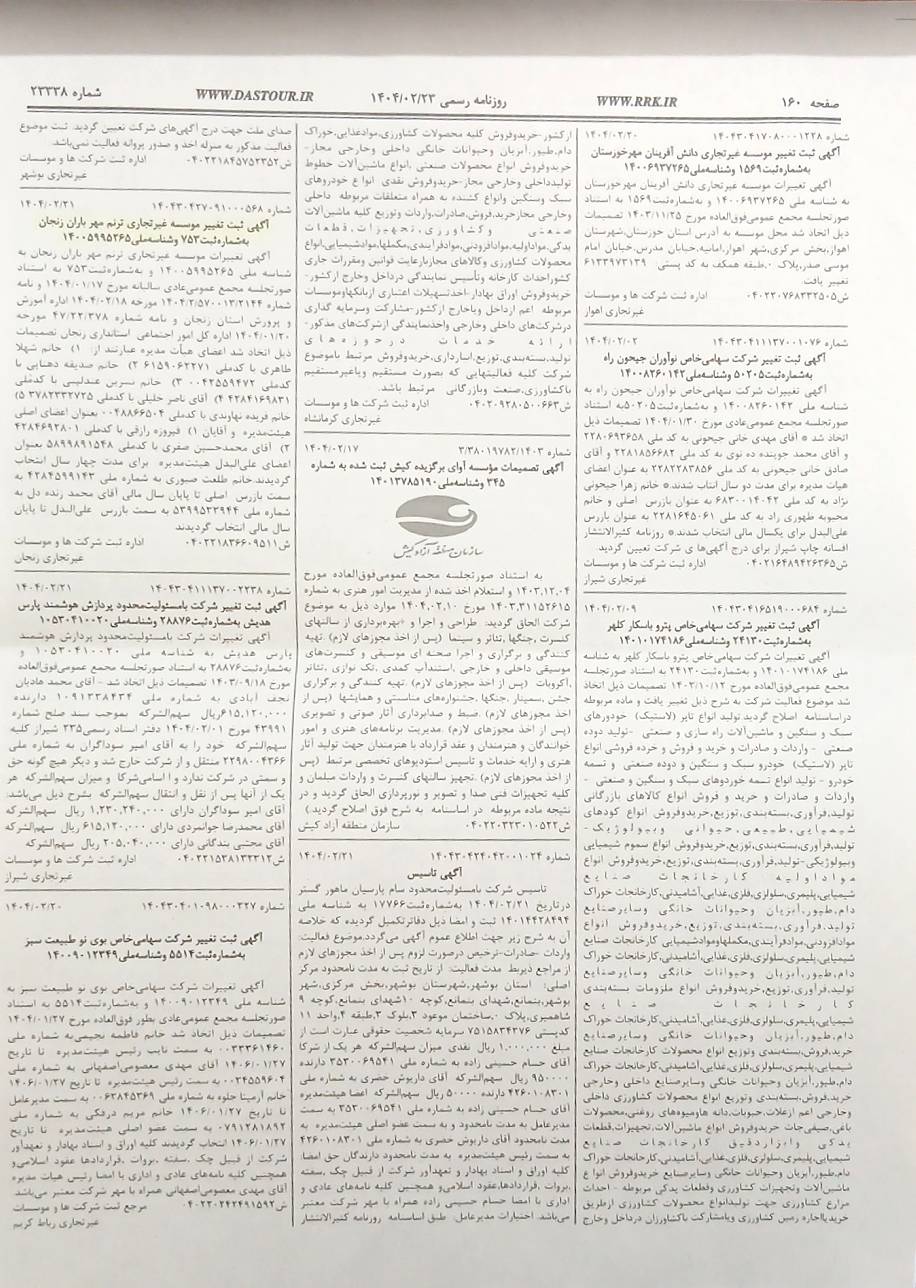 صفحه ۱۶۰
WWW.RRK.IR
روزنامه رسمی ۱۴۰۴/۰۲/۲۳
WWW.DASTOUR.IR
شماره ۲۳۳۳۸
شماره ۱۴۰۴۳۰۴۱۷۰۸۰۰۰۱۲۲۸ ۱۴۰۴/۰۲/۲۰
آگهی ثبت تغییر موسسه غیرتجاری دانش آفرینان مهرخوزستان
به‌شماره‌ثبت۱۵۶۹ وشناسه‌ملی۱۴۰۰۶۹۳۷۲۶۵
آگهی تغییرات موسسه غیرتجاری دانش آفرینان مهرخوزستان
به شناسه ملی ۱۴۰۰۶۹۳۷۲۶۵ و به‌شماره‌ثبت۱۵۶۹ به استناد
صورتجلسه مجمع عمومی‌فوق‌العاده مورخ ۱۴۰۳/۱۱/۲۵ تصمیمات
ذیل اتخاذ شد محل موسسه به آدرس استان خوزستان،شهرستان
اهواز،بخش مرکزی،شهر اهواز،امانیه،خیابان مدرس،خیابان امام
موسی صدر،پلاک ۰،طبقه همکف به کد پستی ۶۱۳۳۹۷۳۱۳۹
تغییر یافت.
ش۰۴۰۲۲۰۷۶۸۳۳۲۵۰۵ اداره ثبت شرکت ها و موسسات
غیرتجاری اهواز
شماره ۱۴۰۴۳۰۴۱۱۱۳۷۰۰۱۰۷۶ ۱۴۰۴/۰۲/۰۲
آگهی ثبت تغییر شرکت سهامی‌خاص نوآوران جیحون راه
به‌شماره‌ثبت۵۰۲۰۵ وشناسه‌ملی۱۴۰۰۸۲۶۰۱۴۲
آگهی تغییرات شرکت سهامی‌خاص نوآوران جیحون راه به
شناسه ملی ۱۴۰۰۸۲۶۰۱۴۲ و به‌شماره‌ثبت۵۰۲۰۵به استناد
صورتجلسه مجمع عمومی‌عادی مورخ ۱۴۰۴/۰۱/۳۰ تصمیمات ذیل
اتخاذ شد * آقای مهدی خانی جیحونی به کد ملی ۲۲۸۰۶۹۳۶۵۸
و آقای محمد جوینده ده نوی به کد ملی ۲۲۸۱۸۵۶۶۸۲ و آقای
صادق خانی جیحونی به کد ملی ۲۲۸۲۲۸۳۸۵۶ به عنوان اعضای
هیات مدیره برای مدت دو سال انتاب شدند.* خانم زهرا جیحونی
نژاد به کد ملی ۶۸۳۰۰۱۴۰۴۲ به عنوان بازرس اصلی و خانم
محبوبه طهوری راد به کد ملی ۲۲۸۱۶۴۵۰۶۱ به عنوان بازرس
علی‌البدل برای یکسال مالی انتخاب شدند.* روزنامه کثیرالانتشار
افسانه چاپ شیراز برای درج آگهی‌ها ی شرکت تعیین گردید.
ش۰۴۰۲۱۶۴۸۹۴۲۶۳۶۵ اداره ثبت شرکت ها و موسسات
غیرتجاری شیراز
شماره ۱۴۰۴۳۰۴۱۶۵۱۹۰۰۰۶۸۴ ۱۴۰۴/۰۲/۰۹
آگهی ثبت تغییر شرکت سهامی‌خاص پترو باسکار کلهر
به‌شماره‌ثبت۲۴۱۳۰ وشناسه‌ملی۱۴۰۱۰۱۷۴۱۸۶
آگهی تغییرات شرکت سهامی‌خاص پترو باسکار کلهر به شناسه
ملی ۱۴۰۱۰۱۷۴۱۸۶ و به‌شماره‌ثبت۲۴۱۳۰ به استناد صورتجلسه
مجمع عمومی‌فوق‌العاده مورخ ۱۴۰۳/۱۰/۱۲ تصمیمات ذیل اتخاذ
شد موضوع فعالیت شرکت به شرح ذیل تغییر یافت و ماده مربوطه
دراساسنامه اصلاح گردید.تولید انواع تایر (لاستیک) خودورهای
سبک و سنگین و ماشین‌آلات راه سازی و صنعتی- تولید دوده
صنعتی - واردات و صادرات و خرید و فروش و خرده فروشی انواع
تایر (لاستیک) خودرو سبک و سنگین و دوده صنعتی و تسمه
خودرو - تولید انواع تسمه خوردوهای سبک و سنگین و صنعتی -
واردات و صادرات و خرید و فروش انواع کالاهای بازرگانی
تولید،فرآوری،بسته‌بندی،توزیع،خریدوفروش انواع کودهای
شیمیایی،طبیعی،حیوانی وبیولوژیک-
تولید،فرآوری،بسته‌بندی،توزیع،خریدوفروش انواع سموم شیمیایی
وبیولوژیکی-تولید،فرآوری،بسته‌بندی،توزیع،خریدوفروش انواع
مواداولیه کارخانجات صنایع
شیمیایی،پلیمری،سلولزی،فلزی،غذایی،آشامیدنی،کارخانجات خوراک
دام،طیور،آبزیان وحیوانات خانگی وسایرصنایع
تولید،فرآوری،بسته‌بندی،توزیع،خریدوفروش انواع
موادافزودنی،موادفرآیندی،مکملهاوموادشیمیایی کارخانجات صنایع
شیمیایی،پلیمری،سلولزی،فلزی،غذایی،آشامیدنی،کارخانجات خوراک
دام،طیور،آبزیان وحیوانات خانگی وسایرصنایع
تولید،فرآوری،توزیع،خریدوفروش انواع ملزومات بسته‌بندی
کارخانجات صنایع
شیمیایی،پلیمری،سلولزی،فلزی،غذایی،آشامیدنی،کارخانجات خوراک
دام،طیور،آبزیان وحیوانات خانگی وسایرصنایع
خرید،فروش،بسته‌بندی وتوزیع انواع محصولات کارخانجات صنایع
شیمیایی،پلیمری،سلولزی،فلزی،غذایی،آشامیدنی،کارخانجات خوراک
دام،طیور،آبزیان وحیوانات خانگی وسایرصنایع داخلی وخارجی
خرید،فروش،بسته‌بندی وتوزیع انواع محصولات کشاورزی داخلی
وخارجی اعم ازغلات،حبوبات،دانه هاومیوه‌های روغنی،محصولات
باغی،صیفی‌جات خریدوفروش انواع ماشین‌آلات،تجهیزات،قطعات
یدکی وابزاردقیق کارخانجات صنایع
شیمیایی،پلیمری،سلولزی،فلزی،غذایی،آشامیدنی،کارخانجات خوراک
دام،طیور،آبزیان وحیوانات خانگی وسایرصنایع خریدوفروش انوا ع
ماشین‌آلات وتجهیزات کشاورزی وقطعات یدکی مربوطه - احداث
مزارع کشاورزی جهت تولیدانواع محصولات کشاورزی ازطریق
خریدیااجاره زمین کشاورزی ویامشارکت باکشاورزان درداخل وخارج
ازکشور-خریدوفروش کلیه محصولات کشاورزی،موادغذایی،خوراک
دام،طیور،آبزیان وحیوانات خانگی داخلی وخارجی مجاز-
خریدوفروش انواع محصولات صنعتی ،انواع ماشین‌آلات خطوط
تولیدداخلی وخارجی مجاز-خریدوفروش نقدی انوا ع خودروهای
سبک وسنگین وانواع کشنده به همراه متعلقات مربوطه داخلی
وخارجی مجازخرید،فروش،صادرات،واردات وتوزیع کلیه ماشین‌آلات
صنعتی وکشاورزی،تجهیزات،قطعات
یدکی،مواداولیه،موادافزودنی،موادفرآیندی،مکملها،موادشیمیایی،انواع
محصولات کشاورزی وکالاهای مجازبارعایت قوانین ومقررات جاری
کشور،احداث کارخانه وتأسیس نمایندگی درداخل وخارج ازکشور-
خریدوفروش اوراق بهادار-اخذتسهیلات اعتباری ازبانکهاوموسسات
مربوطه اعم ازداخل ویاخارج ازکشور-مشارکت وسرمایه گذاری
درشرکت‌های داخلی وخارجی واخذنمایندگی ازشرکت‌های مذکور-
ارائه خدمات درحوزه‌های
تولید،بسته‌بندی،توزیع،انبارداری،خریدوفروش مرتبط باموضوع
شرکت کلیه فعالیتهایی که بصورت مستقیم ویاغیرمستقیم
باکشاورزی،صنعت وبازرگانی مرتبط باشد.
ش۰۴۰۲۰۹۲۸۰۵۰۰۶۶۳ اداره ثبت شرکت ها و موسسات
غیرتجاری کرمانشاه
شماره ۳/۳۸۰۱۹۷۸۲/۱۴۰۳ ۱۴۰۴/۰۲/۱۷
آگهی تصمیمات مؤسسه آوای برگزیده کیش ثبت شده به شماره
۳۴۵ وشناسه‌ملی۱۴۰۱۳۷۸۵۱۹۰
سازمان منطقه آزاد کیش
به استناد صورتجلسه مجمع عمومی‌فوق‌العاده مورخ
۱۴۰۳,۱۲,۰۴ و استعلام اخذ شده از مدیریت امور هنری به شماره
۱۴۰۳,۳۱۱۵۲۶۱۵ مورخ ۱۴۰۴,۰۲,۱۰ موارد ذیل به موضوع
شرکت الحاق گردید: طراحی و اجرا و «بهره‌برداری از سالنهای
کنسرت ,جنگها, تئاتر و سینما (پس از اخذ مجوزهای لازم) .تهیه
کنندگی و برگزاری و اجرا صحنه ای موسیقی و کنسرت‌های
موسیقی داخلی و خارجی ,استندآپ کمدی ,تک نوازی ,تئاتر
,آکروبات (پس از اخذ مجوزهای لازم) .تهیه کنندگی و برگزاری
جشن ,سمینار ,جنگها ,جشنواره‌های مناسبتی و همایشها (پس از
اخذ مجوزهای لازم) .ضبط و صدابرداری آثار صوتی و تصویری
(پس از اخذ مجوزهای لازم) .مدیریت برنامه‌های هنری و امور
خوانندگان و هنرمندان و عقد قرارداد با هنرمندان جهت تولید آثار
هنری و ارایه خدمات و تاسیس استودیوهای تخصصی مرتبط (پس
از اخذ مجوزهای لازم) .تجهیز سالنهای کنسرت و واردات مبلمان و
کلیه تجهیزات فنی صدا و تصویر و نورپردازی الحاق گردید و در
نتیجه ماده مربوطه در اساسنامه به شرح فوق اصلاح گردید.)
ش۰۴۰۲۲۰۳۲۳۰۱۰۵۲۲ سازمان منطقه آزاد کیش
شماره ۱۴۰۴۳۰۴۲۴۰۴۲۰۰۱۰۲۴ ۱۴۰۴/۰۲/۲۱
آگهی تاسیس
تاسیس شرکت بامسئولیت‌محدود سام پارسیان ماهور گستر
درتاریخ ۱۴۰۴/۰۲/۲۱ به‌شماره‌ثبت۱۷۷۶۶ به شناسه ملی
۱۴۰۱۴۴۲۸۴۹۴ ثبت و امضا ذیل دفاترتکمیل گردیده که خلاصه
آن به شرح زیر جهت اطلاع عموم آگهی می‌گردد.موضوع فعالیت:
واردات -صادرات-ترخیص درصورت لزوم پس از اخذ مجوزهای لازم
از مراجع ذیربط مدت فعالیت: از تاریخ ثبت به مدت نامحدود مرکز
اصلی: استان بوشهر,شهرستان بوشهر,بخش مرکزی,شهر
بوشهر,بنمانع,شهدای بنمانع,کوچه ۱۰شهدای بنمانع,کوچه ۹
شاهمیری,پلاک ۰,ساختمان موعود ۳,بلوک ۳,طبقه ۴,واحد ۱۱
کدپستی ۷۵۱۵۸۳۴۳۷۶ سرمایه شخصیت حقوقی عبارت است از
مبلغ ۱,۰۰۰,۰۰۰ ریال نقدی میزان سهم‌الشرکه هر یک از شرکا
آقای حسام حسینی زاده به شماره ملی ۳۵۳۰۰۶۹۵۴۱ دارنده
۹۵۰۰۰۰ ریال سهم‌الشرکه آقای داریوش خضری به شماره ملی
۴۲۶۰۱۰۸۳۰۱ دارنده ۵۰۰۰۰ ریال سهم‌الشرکه اعضا هیئت‌مدیره
آقای حسام حسینی زاده به شماره ملی ۳۵۳۰۰۶۹۵۴۱ به سمت
مدیرعامل به مدت نامحدود و به سمت عضو اصلی هیئت‌مدیره به
مدت نامحدود آقای داریوش خضری به شماره ملی ۴۲۶۰۱۰۸۳۰۱
به سمت رئیس هیئت‌مدیره به مدت نامحدود دارندگان حق امضا:
کلیه اوراق و اسناد بهادار و تعهدآور شرکت از قبیل چک ,سفته
,بروات ,قراردادها,عقوداسلامی‌و همچنین کلیه نامه‌های عادی و
اداری با امضا حسام حسینی زاده همراه با مهر شرکت معتبر
می‌باشد. اختیارات مدیرعامل: طبق اساسنامه روزنامه کثیرالانتشار
صدای ملت جهت درج آگهی‌های شرکت تعیین گردید. ثبت موضوع
فعالیت مذکور به منزله اخذ و صدور پروانه فعالیت نمی‌باشد.
ش۰۴۰۲۲۱۸۴۵۷۵۲۳۵۲ اداره ثبت شرکت ها و موسسات
غیرتجاری بوشهر
شماره ۱۴۰۴۳۰۴۲۷۰۹۱۰۰۰۵۶۸ ۱۴۰۴/۰۲/۲۱
آگهی ثبت تغییر موسسه غیرتجاری ترنم مهر باران زنجان
به‌شماره‌ثبت۷۵۳ وشناسه‌ملی۱۴۰۰۵۹۹۵۲۶۵
آگهی تغییرات موسسه غیرتجاری ترنم مهر باران زنجان به
شناسه ملی ۱۴۰۰۵۹۹۵۲۶۵ و به‌شماره‌ثبت۷۵۳ به استناد
صورتجلسه مجمع عمومی‌عادی سالیانه مورخ ۱۴۰۴/۰۱/۱۷ و نامه
شماره ۱۴۰۴/۲/۵۷۰۰۱۳/۲۱۴۴ مورخه ۱۴۰۴/۰۲/۱۸ اداره آموزش
و پرورش استان زنجان و نامه شماره ۴۷/۲۲/۳۷۸ مورخه
۱۴۰۴/۰۱/۲۰ اداره کل امور اجتماعی استانداری زنجان تصمیمات
ذیل اتخاذ شد اعضای هیأت مدیره عبارتند از: ۱) خانم شهلا
طاهری با کدملی ۶۱۵۹۰۶۲۲۷۱ ۲) خانم صدیقه دهنایی با
کدملی ۰۰۴۲۵۵۹۴۷۲ ۳) خانم نسرین عندلیبی با کدملی
۴۲۸۴۱۶۹۸۳۱ ۴) آقای ناصر خلیلی با کدملی ۳۷۸۲۳۳۲۷۲۵ ۵)
خانم فریده نهاوندی با کدملی ۰۰۴۸۸۶۶۵۰۴ بعنوان اعضای اصلی
هیئت‌مدیره و آقایان ۱) فیروزه رازقی با کدملی ۴۲۸۴۶۹۲۸۰۱
۲) آقای محمدحسین صفری با کدملی ۵۸۹۹۸۹۱۵۴۸ بعنوان
اعضای علی‌البدل هیئت‌مدیره برای مدت چهار سال انتخاب
شدند.خانم طلعت صبوری به شماره ملی ۴۲۸۴۵۹۹۱۴۳ به
سمت بازرس اصلی تا پایان سال مالی آقای محمد زنده دل به
شماره ملی ۵۳۹۹۵۳۳۹۴۴ به سمت بازرس علی‌البدل تا پایان
سال مالی انتخاب گردیدند
ش۰۴۰۲۲۱۸۳۶۶۰۹۵۱۱ اداره ثبت شرکت ها و موسسات
غیرتجاری زنجان
شماره ۱۴۰۴۳۰۴۱۱۱۳۷۰۰۲۲۳۸ ۱۴۰۴/۰۲/۲۱
آگهی ثبت تغییر شرکت بامسئولیت‌محدود پردازش هوشمند پارس
هدیش به‌شماره‌ثبت۲۸۸۷۶ وشناسه‌ملی۱۰۵۳۰۴۱۰۰۲۰
آگهی تغییرات شرکت بامسئولیت‌محدود پردازش هوشمند
پارس هدیش به شناسه ملی ۱۰۵۳۰۴۱۰۰۲۰ و
به‌شماره‌ثبت۲۸۸۷۶ به استناد صورتجلسه مجمع عمومی‌فوق‌العاده
مورخ ۱۴۰۳/۰۹/۱۸ تصمیمات ذیل اتخاذ شد - آقای محمد هادیان
نجف آبادی به شماره ملی ۱۰۹۱۳۳۸۴۳۴ دارنده
۶۱۵,۱۲۰,۰۰۰ریال سهم‌الشرکه بموجب سند صلح شماره
۴۳۹۹۱ مورخ ۱۴۰۴/۰۲/۰۱ دفتر اسناد رسمی۲۳۵ شیراز کلیه
سهم‌الشرکه خود را به آقای امیر سوداگران به شماره ملی
۲۲۹۸۰۰۴۳۶۶ منتقل و از شرکت خارج شد و دیگر هیچ گونه حق
و سمتی در شرکت ندارد و اسامی‌شرکا و میزان سهم‌الشرکه هر
یک از آنها پس از نقل و انتقال سهم‌الشرکه بشرح ذیل می‌باشد:
آقای امیر سوداگران دارای ۱,۲۳۰,۲۴۰,۰۰۰ ریال سهم‌الشرکه
آقای محمدرضا جوانمردی دارای ۶۱۵,۱۲۰,۰۰۰ ریال سهم‌الشرکه
آقای مجتبی بندگانی دارای ۲۰۵,۰۴۰,۰۰۰ ریال سهم‌الشرکه
ش۰۴۰۲۲۱۵۳۸۱۳۲۳۱۲ اداره ثبت شرکت ها و موسسات
غیرتجاری شیراز
شماره ۱۴۰۴۳۰۴۰۱۰۹۸۰۰۰۳۲۷ ۱۴۰۴/۰۲/۲۰
آگهی ثبت تغییر شرکت سهامی‌خاص بوی نو طبیعت سبز
به‌شماره‌ثبت۵۵۱۴ وشناسه‌ملی۱۴۰۰۹۰۱۲۳۴۹
آگهی تغییرات شرکت سهامی‌خاص بوی نو طبیعت سبز به
شناسه ملی ۱۴۰۰۹۰۱۲۳۴۹ و به‌شماره‌ثبت۵۵۱۴ به استناد
صورتجلسه مجمع عمومی‌عادی بطور فوق‌العاده مورخ ۱۴۰۴/۰۱/۲۷
تصمیمات ذیل اتخاذ شد خانم فاطمه بجیمی‌به شماره ملی
۰۰۳۳۳۶۱۴۶۰ به سمت نایب رئیس هیئت‌مدیره تا تاریخ
۱۴۰۶/۰۱/۲۷ آقای مهدی معصومی‌اصفهانی به شماره ملی
۰۰۲۴۵۵۹۶۰۴ به سمت رئیس هیئت‌مدیره تا تاریخ ۱۴۰۶/۰۱/۲۷
خانم آرمیتا جلوه به شماره ملی ۰۰۶۳۸۴۵۳۶۹ به سمت مدیرعامل
تا تاریخ ۱۴۰۶/۰۱/۲۷ خانم مریم درفکی به شماره ملی
۰۷۹۱۲۸۱۸۹۲ به سمت عضو اصلی هیئت‌مدیره تا تاریخ
۱۴۰۶/۰۱/۲۷ انتخاب گردیدند کلیه اوراق و اسناد بهادار و تعهدآور
شرکت از قبیل چک ,سفته ,بروات ,قراردادها عقود اسلامی‌و
همچنین کلیه نامه‌های عادی و اداری با امضا رئیس هیات مدیره
آقای مهدی معصومی‌اصفهانی همراه با مهر شرکت معتبر می‌باشد
ش۰۴۰۲۲۰۲۴۲۴۹۱۵۹۲ مرجع ثبت شرکت ها و موسسات
غیرتجاری رباط کریم